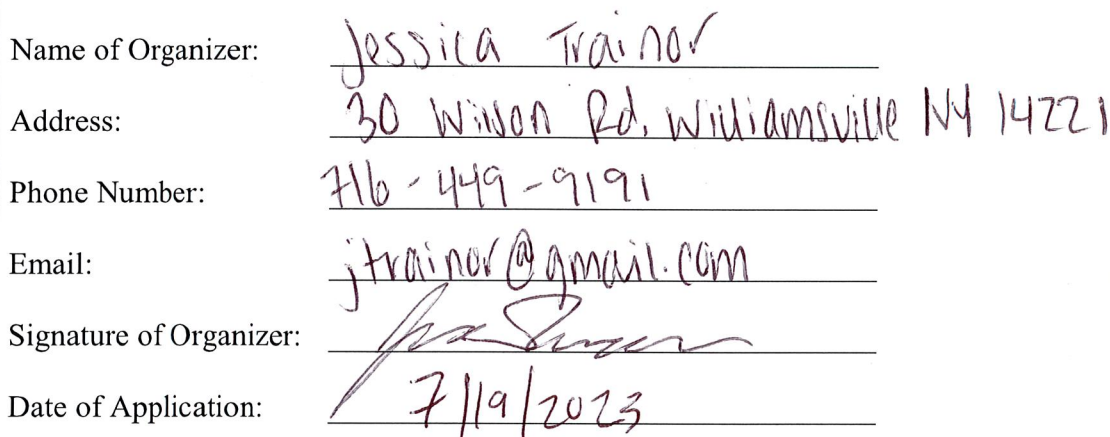 Name of Organizer: Jessica Trainor
Address: 30 Wilson Rd, Williamsville NY 14221
Phone Number: 716-449-9191
Email: jtrainor@gmail.com
Signature of Organizer:
Date of Application: 7/19/2023